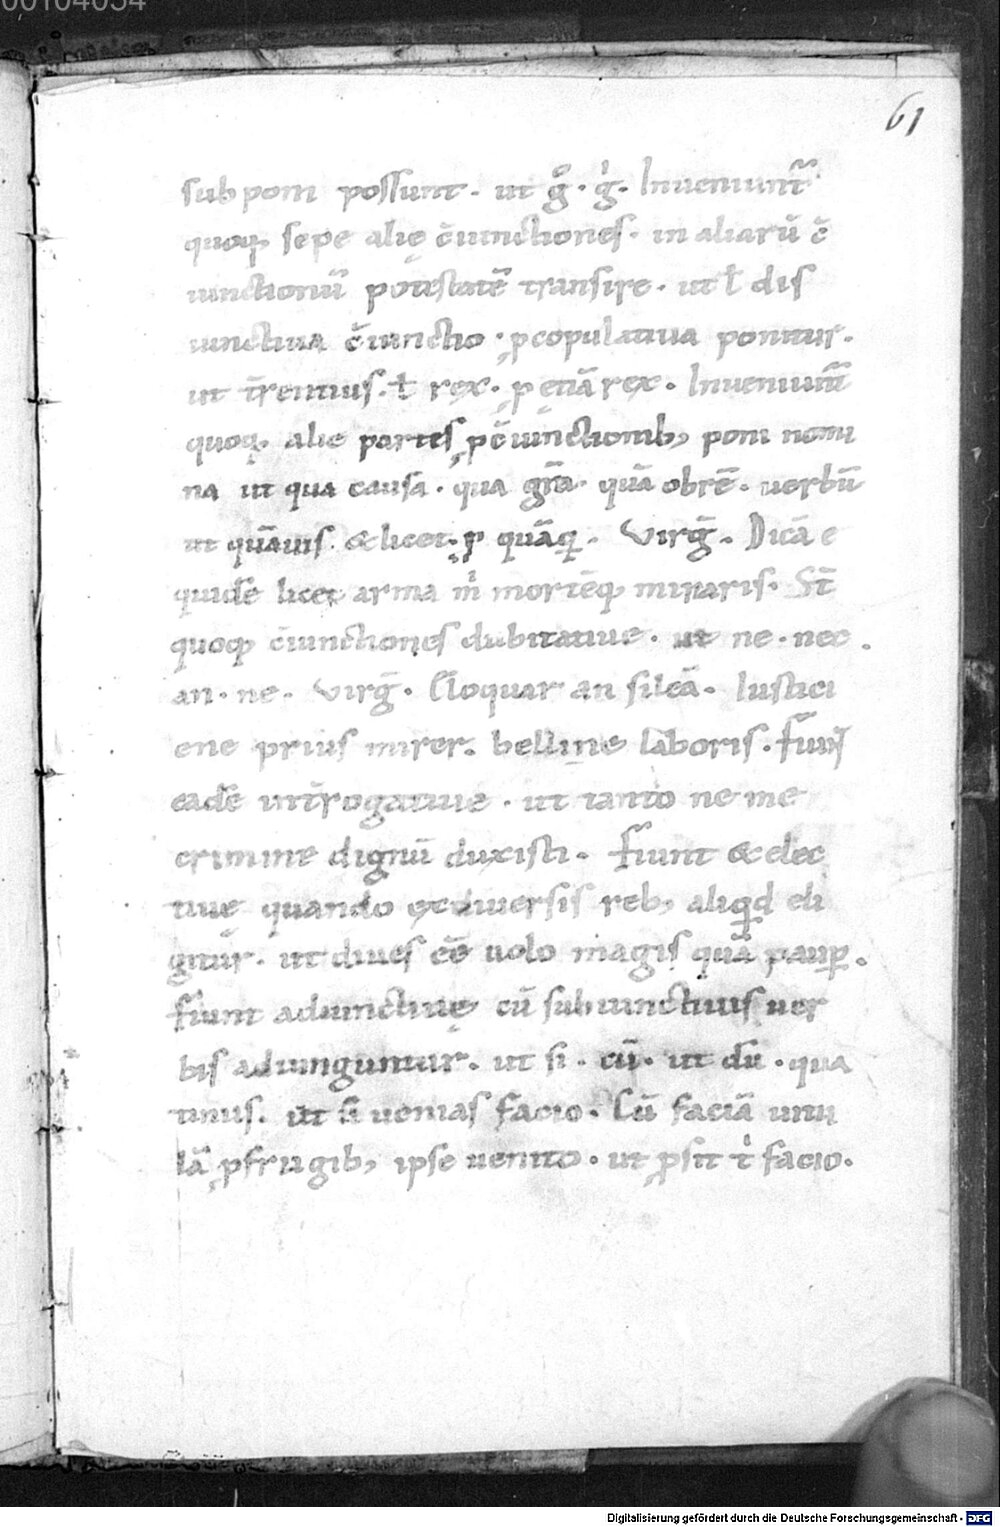 00104054
61
subponi possunt. ut g̊. gͥ. Inueniunt̃
quoq; sepe alię c̃iunctiones. in aliarũ c̃
iunctionũ potestatẽ transire. ut ł dis
iunctiua c̃iunctio. ꝓcopulatiua ponitur.
ut t̃rentius. ł rex. ꝓ etiã rex. Inueniunt̃
quoq; alie partes ꝓc̃iunctionib; poni nomi
na ut qua causa. qua gr̃a. quã obrẽ. uerbũ
ut quãuis. & licet. ꝓ quãq. Virg̃. Dicã e
quidẽ licet arma m̃ mortẽq; minaris. St̃
quoq; c̃iunctiones dubitatiue. ut ne. nec.
an. ne. Virg̃. Eloquar an sileã. Iustici
ene prius mirer. belline laboris. Fiunt
eadẽ int̃rogatiue. ut tanto ne me
crimine dignũ duxisti. Fiunt & elec
tiuę quando ex diuersis reb; aliqd eli
gitur. ut diues eẽ uolo magis quã pauꝑ.
Fiunt adiunctiuę cũ subiunctiuis uer
bis adiunguntur. ut si. cũ. ut dũ. qua
tinus. ut si uenias facio. Cũ faciã uitu
lã ꝓfrugib; ipse uenito. ut ꝓsit tͥ facio.
Digitalisierung gefördert durch die Deutsche Forschungsgemeinschaft - DFG